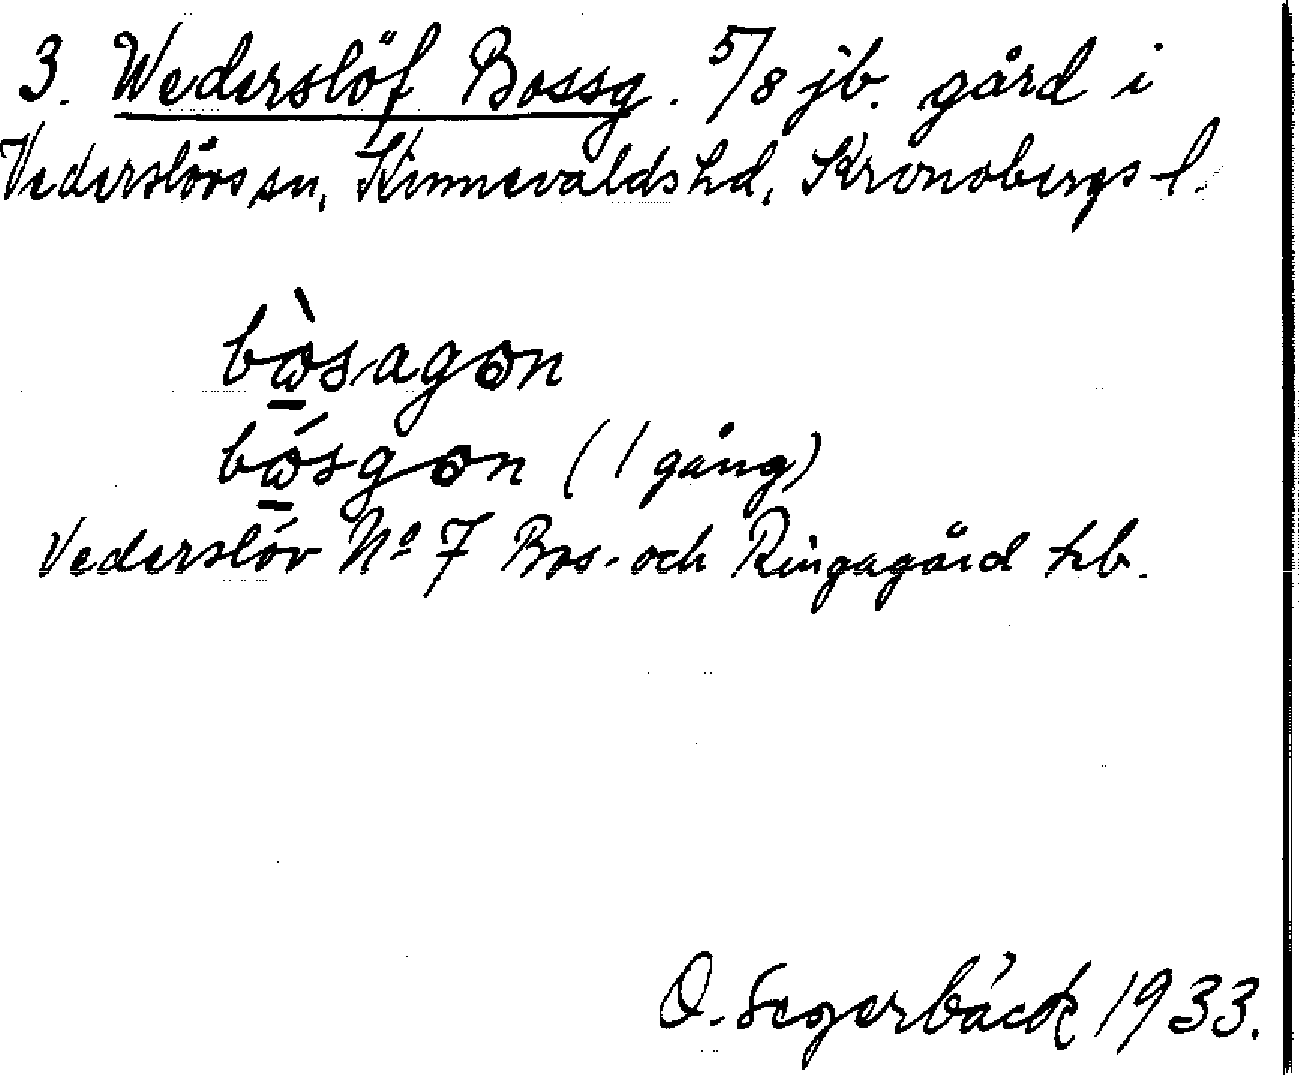 3. Wederslöf Bossg. 5/8 jb. gård i
Vederslövs sn, Kinnevalds hd, Kronobergs l.
bɷ̀sagɷn
bɷ́sgɷn (1 gång)
Vederslöv No 7 Bos- och Ringagård hb.
O. Segerbäck 1933.